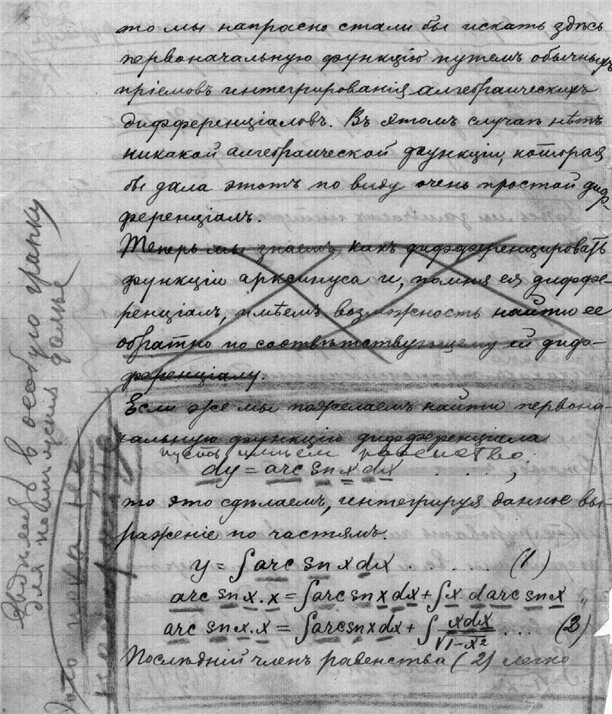 то мы напрасно стали бы искать здѣсь
первоначальную функцію путемъ обычныхъ
пріемовъ интегрированія алгебраическихъ
дифференціаловъ. Въ этомъ случаѣ нѣтъ
никакой алгебраической функціи, которая
бы дала этотъ по виду очень простой диф-
ференціалъ.
Теперь мы знаемъ, какъ дифференцировать
функціи арксинуса и, помня ея диффе-
ренціалъ, имѣемъ возможность найти ее
обратно по соотвѣтствующему ей диф-
ференціалу.
Если же мы пожелаемъ найти первона-
чальную функцію дифференціала
равенство
dy = arc sn x dx . . . . . . ,
то это сдѣлаемъ, интегрируя данное вы-
раженіе по частямъ.
y = ∫ arc sn x dx . . . . (1)
arc sn x . x = ∫ arc sn x dx + ∫ x d arc sn x ,,
arc sn x . x = ∫ arc sn x dx + ∫ xdx/√1-x² ... (2)
Послѣдній членъ равенства (2) легко
въ особую гранку
для
Это пока не
набирайте